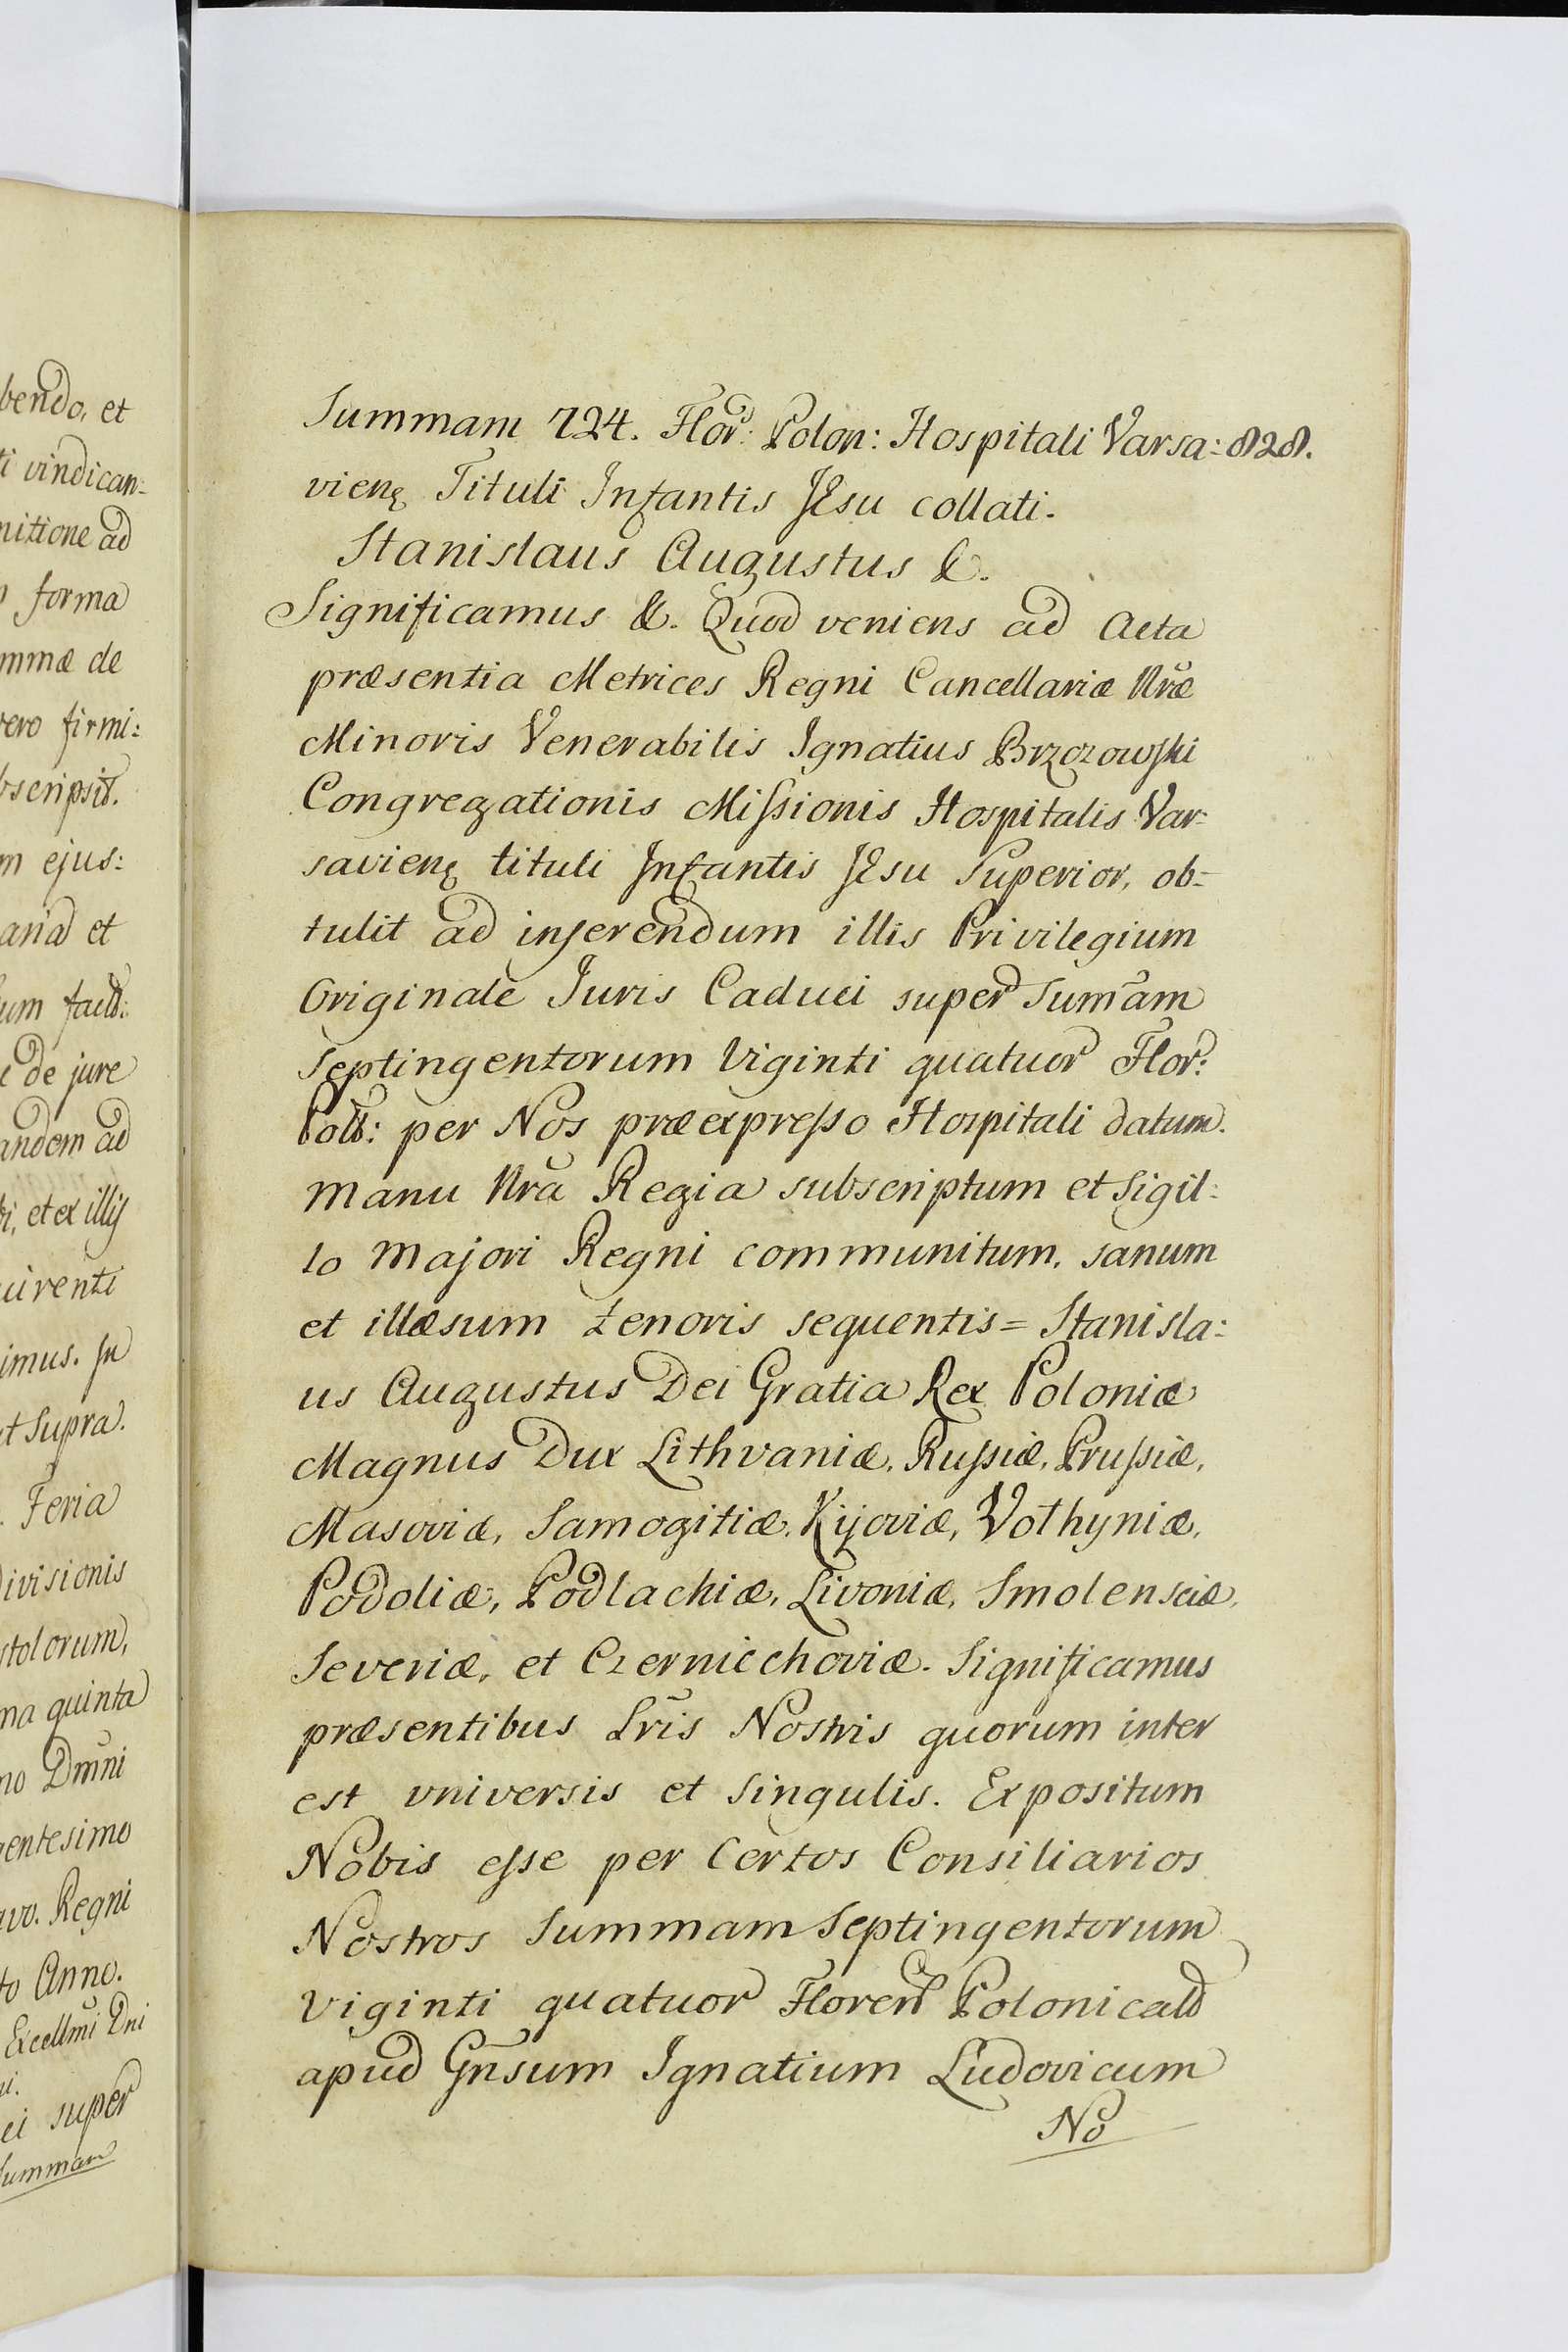 bendo, et
ti vindican:
nitione ad
forma
mmæ de
vero firmi:
bscripsit.
m ejus:
aria et
um fact:
e de jure
andem ad
bi, et ex illis
uirenti
imus. In
ut supra.
Feria
divisionis
stolorum,
ma quinta
no Dmni
gentesimo
avo. Regni
to Anno.
Excellmi Dni
ei super
Summam
Summam 724. Flor: Polon: Hospitali Varsa: 828.
vienę Tituli Infantis JEsu collati.
Stanislaus Augustus &.
Significamus &. Quod veniens ad Acta
præsentia Metrices Regni Cancellariæ Nræ
Minoris Venerabilis Ignatius Brzozowski
Congregationis Missionis Hospitalis Var:
savienę tituli Infantis JEsu Superior, ob=
tulit ad inserendum illis Privilegium
Originale Juris Caduci super Sumam
Septingentorum Viginti quatuor Flor:
Poll: per Nos præexpresso Hospitali datum.
Manu Nra Regia subscriptum et Sigil:
lo Majori Regni communitum, sanum
et illæsum tenoris sequentis = Stanisla:
us Augustus Dei Gratia Rex Poloniæ
Magnus Dux Lithvaniæ, Russiæ, Prussiæ,
Masoviæ, Samogitiæ, Kijoviæ, Volhyniæ,
Podoliæ, Podlachiæ, Livoniæ, Smolensciæ,
Severiæ, et Czerniechoviæ. Significamus
præsentibus Lris Nostris quorum inter
est universis et singulis. Expositum
Nobis esse per Certos Consiliarios
Nostros Summam Septingentorum
Viginti quatuor Floren Polonicall
apud Gnsum Ignatium Ludovicum
No